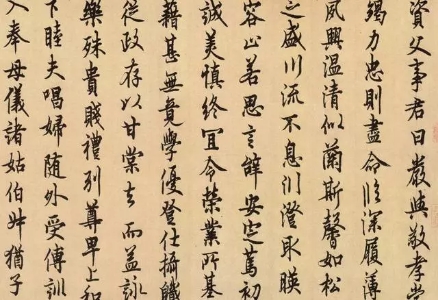 資父事君曰嚴與敬孝當
竭力忠則盡命臨深履薄
夙興溫清似蘭斯馨如松
之盛川流不息渕澄取暎
容止若思言辭安定篤初
誠美慎終宜令榮業所基
藉甚無竟學優登仕攝職
從政存以甘棠去而益詠
樂殊貴賤禮別尊卑上和
下睦夫唱婦随外受傅訓
入奉母儀諸姑伯叔猶子